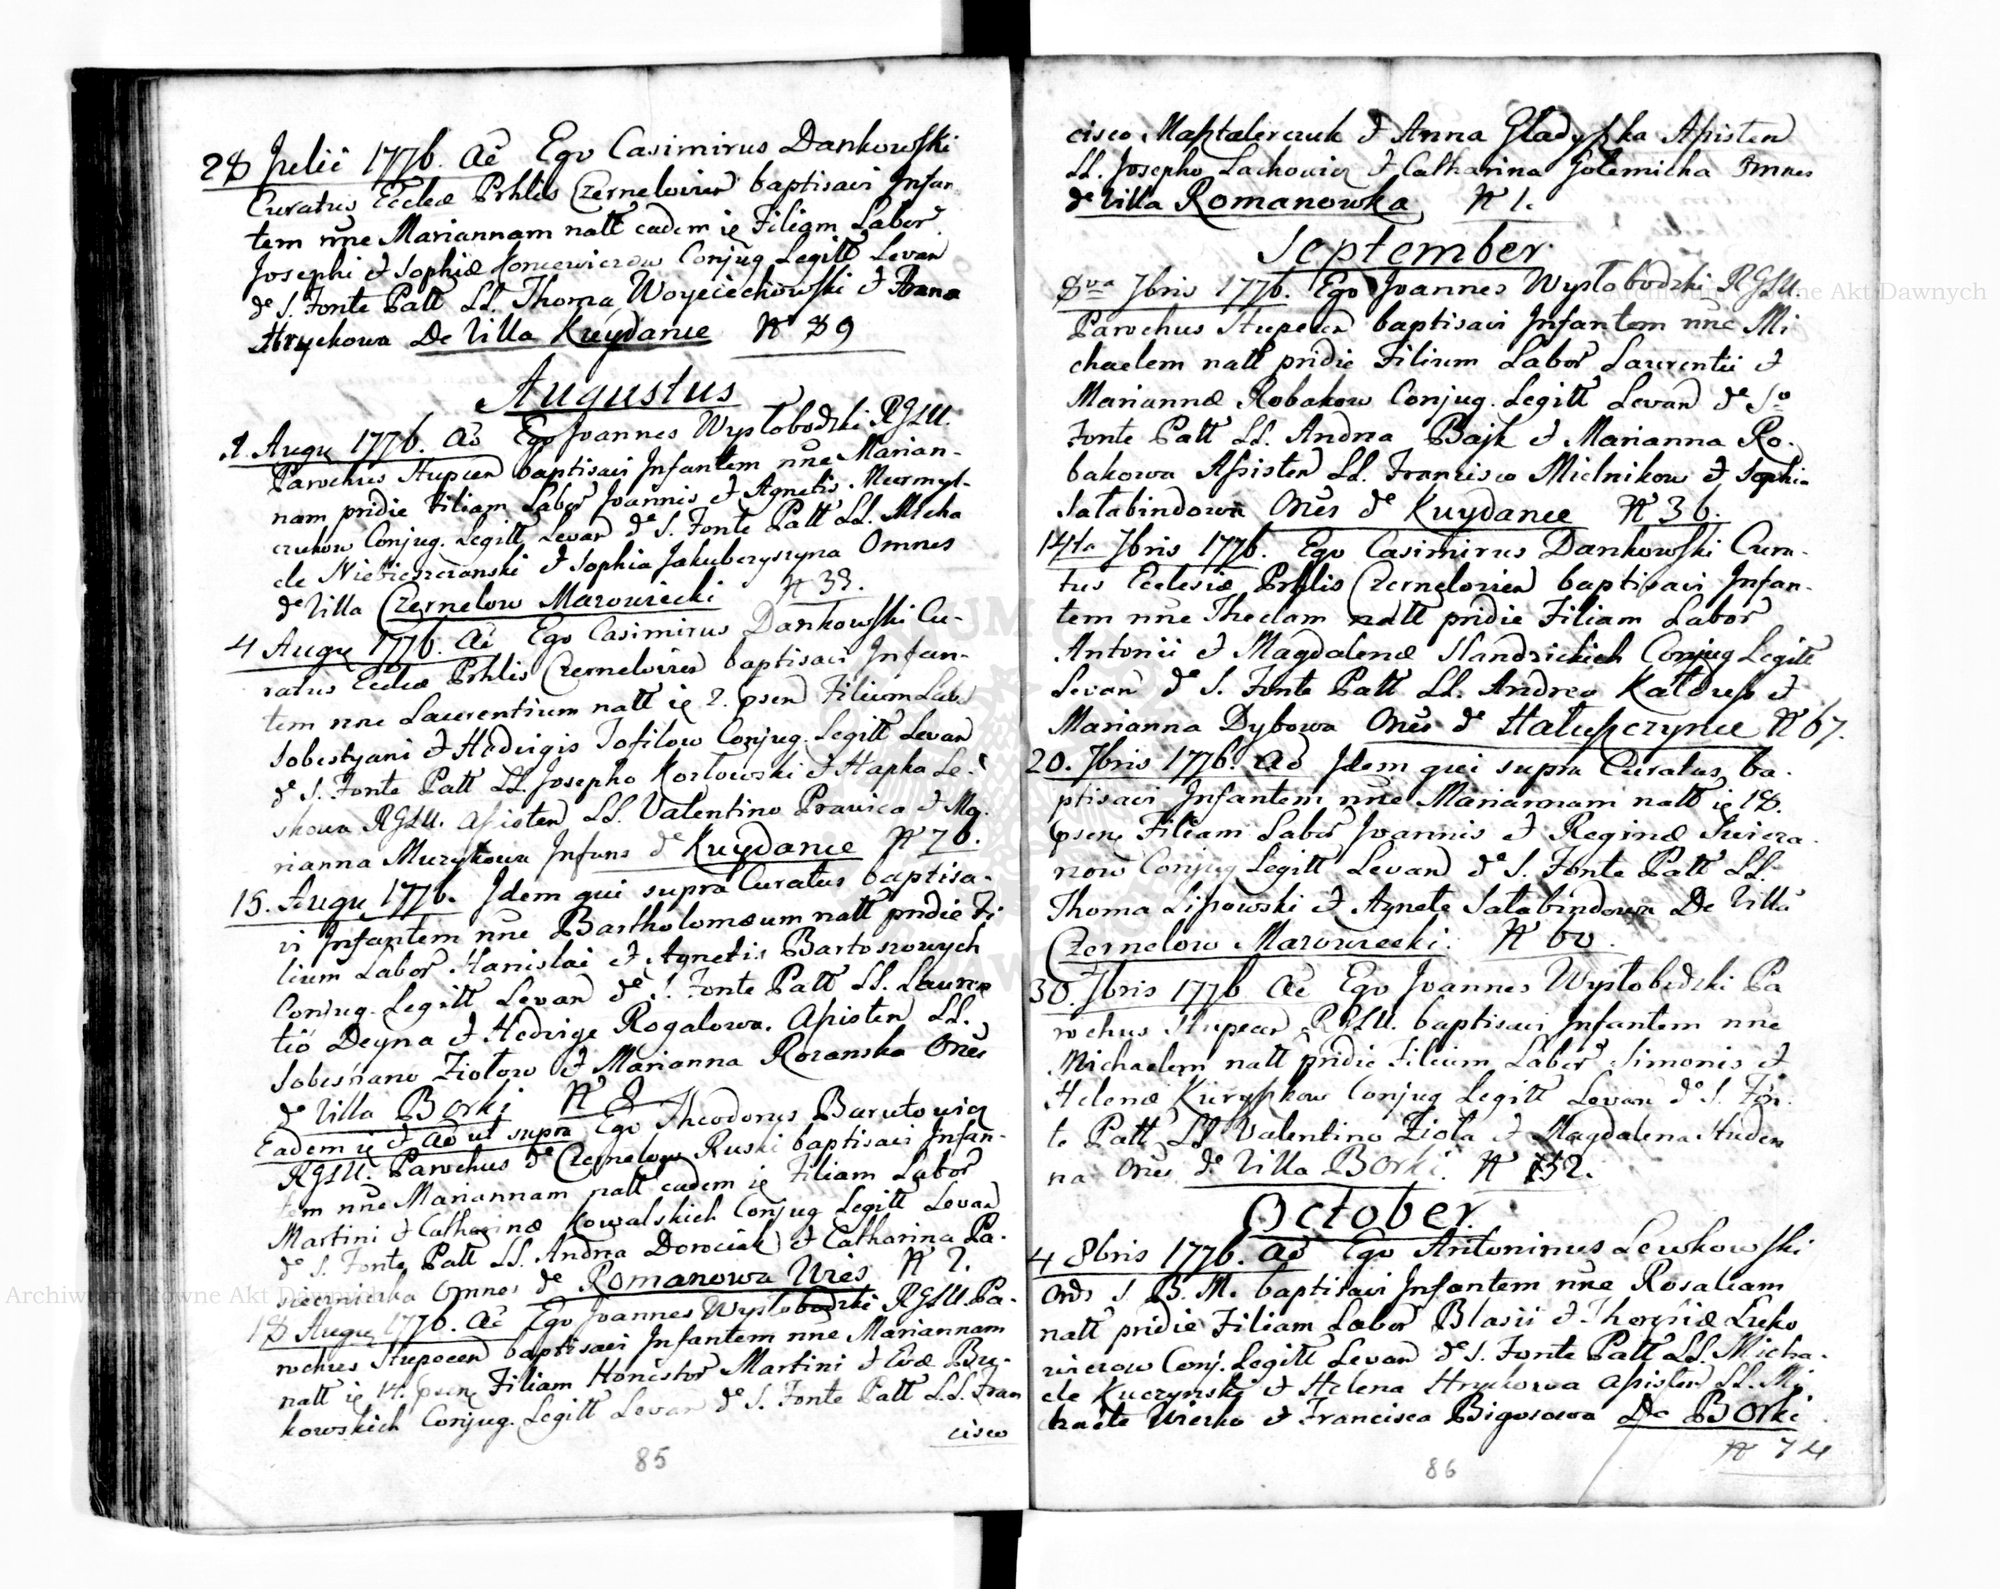 28 Julii 1776. Aō Ego Casimirus Dankowski
Curatus Eccleæ Prhlis Czernelovien baptisavi Infan
tem nne Mariannam natt eadem ię Filiam Labor
Josephi et Sophiæ Koncewiczow Conjug Legitt Levan
de S. Fonte Patt LL. Thoma Woyciechowski et Anna
Hryckowa De Villa Kuydance N 89
Augustus
1. Augu 1776. Aō Ego Joannes Wysłobodzki RGLU.
Parochus Stupcen baptisavi Infantem nne Marian-
nam pridie Filiam Labor Joannis et Agnetis
Conjug. Legitt Levan de S. Fonte Patt LL. Micha
ele Niebieszczanski et Sophia Jakubczyszyna Omnes
de Villa Czernelow Mazowiecki N 33.
4 Augu 1776. Aō Ego Casimirus Dankowski Cu-
ratus Eccleæ Prhlis Czernelovien baptisavi Infan-
tem nne Laurentium natt ię 2. psen Filium Labo
Sobestyani et Hedvigis Tofilow Conjug. Legitt Levan
de S. Fonte Patt LL. Josepho Kozłowski et Hapka Le-
skowa RGLU. Assisten LL. Valentino Prawica et Ma-
rianna Muzykowa Infans de Kuydance N 76.
15. Augu 1776. Idem qui supra Curatus baptisa-
vi Infantem nne Bartholomæum natt pridie Fi
lium Labor Stanislai et Agnetis Bartoszowych
Conjug. Legitt Levan de S. Fonte Patt LL. Lauren
tio Deyna et Hedvige Rogalowa. Assisten LL.
Sobestiano Ziołow et Marianna Rozanska Ones
de Villa Borki N 8
Eadem ię et Aō ut supra Ego Theodorus Barutowicz
RGLU. Parochus de Czernelow Ruski baptisavi Infan-
tem nne Mariannam natt eadem ię Filiam Labor
Martini et Catharinæ Kowalskich Conjug Legitt Levan
de S. Fonte Patt LL. Andrea Dorociak et Catharina Pa-
siecznicka Omnes de Romanowa Wies N 2.
18 Augu 1776. Aō Ego Joannes Wysłobodzki RGLU. Pa-
rochus Stupecen baptisavi Infantem nne Mariannam
natt ię 14. psen Filiam Honestor Martini et Evæ Bu-
kowskich Conjug. Legitt Levan de S. Fonte Patt LL. Fran
cisco
85
cisco Masztalerczuk et Anna Gladyszka Assisten
LL. Josepho Lachowicz et Catharina Golemicha Omnes
de Villa Romanowka N 1.
September
8va 7bris 1776. Ego Joannes Wysłobodzki RGLU.
Parochus Stupecen baptisavi Infantem nne Mi
chaelem natt pridie Filium Labor Laurentii et
Mariannæ Robakow Conjug. Legitt Levan de So
Fonte Patt LL. Andrea Bajk et Marianna Ro-
bakowa Assisten LL. Francisco Mielnikow et Sophia
Satabindowa Ones de Kuydance N 36.
14ta 7bris 1776. Ego Casimirus Dankowski Cura-
tus Ecclesiæ Prhlis Czernelovien baptisavi Infan-
tem nne Theclam natt pridie Filiam Labor
Antonii et Magdalenæ Handzickich Conjug Legitt
Levan de S. Fonte Patt LL. Andrea Kałdusz et
Marianna Dybowa Ones de Hałuszczynce N 67.
20. 7bris 1776. Aō Idem qui supra Curatus ba-
ptisavi Infantem nne Mariannam natt ię 18.
psen Filiam Labor Joannis et Reginæ Swiera-
now Conjug Legitt Levan de S. Fonte Patt LL.
Thoma Lipowski et Agnete Satabindowa De Villa
Czernelow Mazowiecki. N 60.
30. 7bris 1776 Aō Ego Joannes Wysłobodzki Pa
rochus Stupecen RGLU. baptisavi Infantem nne
Michaelem natt pridie Filium Labor Simonis et
Helenæ Kuryszkow Conjug Legitt Levan de S. Fon-
te Patt LL Valentino Zioła et Magdalena Huden
na Ones de Villa Borki. N 132.
October
4 8bris 1776. Aō Ego Antoninus Lewkowski
Ords S. B. M. baptisavi Infantem nne Rosaliam
natt pridie Filiam Labor Blasii et Theresiæ Lucko
wiczow Conj. Legitt Levan de S. Fonte Patt LL. Micha-
ele Kuczynski et Helena Hryckowa Assisten LL. Mi
chaele Wierho et Francisca Bigosowa De Borki
N 74
86
Archiwum Główne Akt Dawnych
Archiwum Główne Akt Dawnych